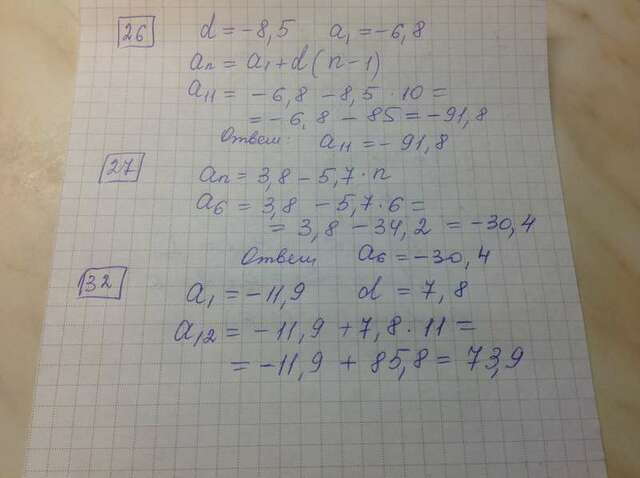 26 d = -8,5 a₁ = -6,8
aₙ = a₁ + d(n-1)
a₁₁ = -6,8 - 8,5 · 10 =
= -6,8 - 85 = -91,8
Ответ: a₁₁ = -91,8
27 aₙ = 3,8 - 5,7 · n
a₆ = 3,8 - 5,7 · 6 =
= 3,8 - 34,2 = -30,4
Ответ a₆ = -30,4
32 a₁ = -11,9 d = 7,8
a₁₂ = -11,9 + 7,8 · 11 =
= -11,9 + 85,8 = 73,9